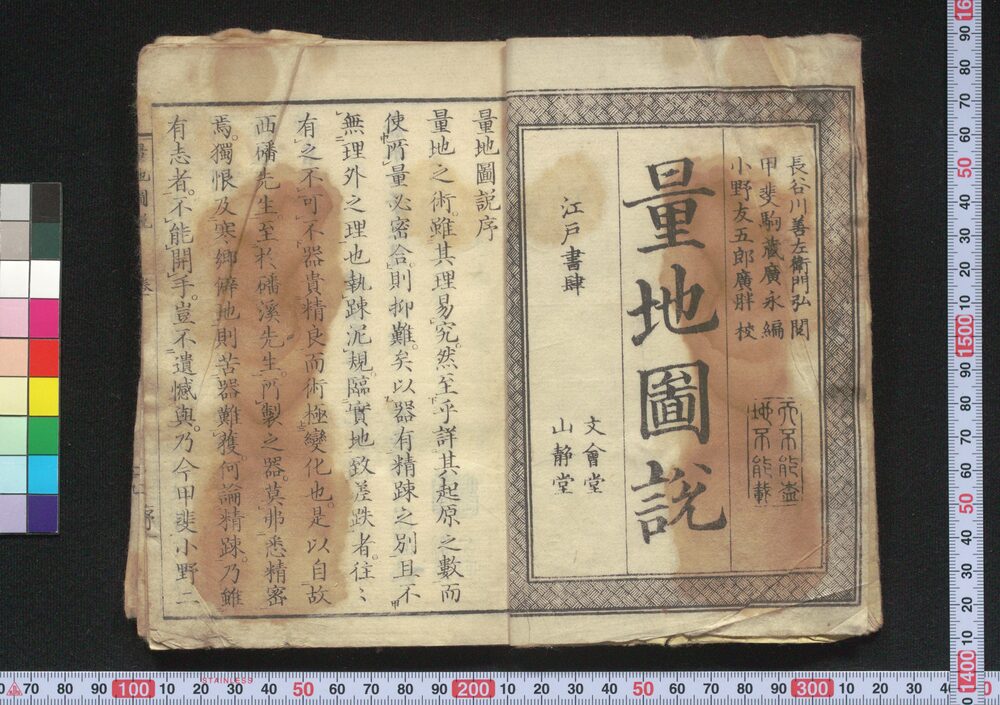 長谷川善左衛門弘閲
甲斐駒蔵廣永編
小野友五郎廣胖校
天不能蓋
地不能載
量地圖說
江戸書肆
文會堂
山静堂
量地圖説序
量地之術。雖其理易究。然至乎詳其起原之數而
使所量必密合。則抑難矣。以器有精踈之別。且不
無理外之理也。執踈泥規。臨實地致差跌者。往々
有之。不可不器貴精良而術極變化也。是以自故
西磻先生。至於磻溪先生。所製之器。莫弗悉精密
焉。獨恨及寒郷僻地則苦器難獲。何論精踈。乃雖
有志者。不能開手。豈不遺憾與。乃今甲斐小野二
量地圖説
STAINLESS
70 80 90 100 10 20 30 40 50 60 70 80 90 200 10 20 30 40 50 60 70 80 90 300 10 20 30
90 80 70 60 50 40 30 20 10 1500 90 80 70 60 50 40 30 20 10 1400